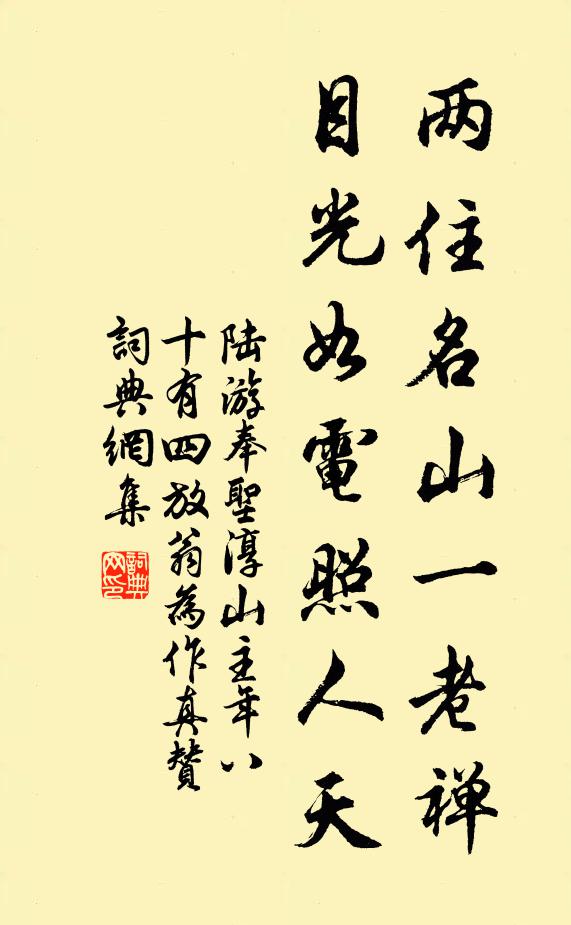 两住名山一老禅
目光如電照人天
陆游奉聖淳山主年八
十有四放翁為作真贊
詞典網集
詞典网印